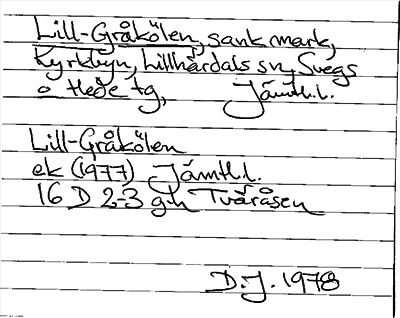 Lill-Gråkölen, sank mark,
Kyrkbyn, Lillhärdals sn, Svegs
o Hede tg, Jämtl.l.
Lill-Gråkölen
ek (1977) Jämtl.l.
16 D 2-3 g-h Tvåråsen
D.J. 1978